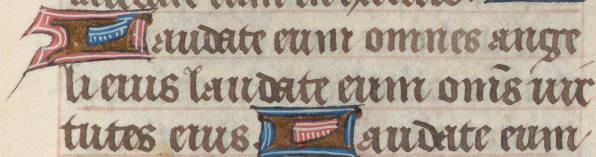 Laudate eum omnes ange
li eius laudate eum om̄s uir
tutes eius. Laudate eum